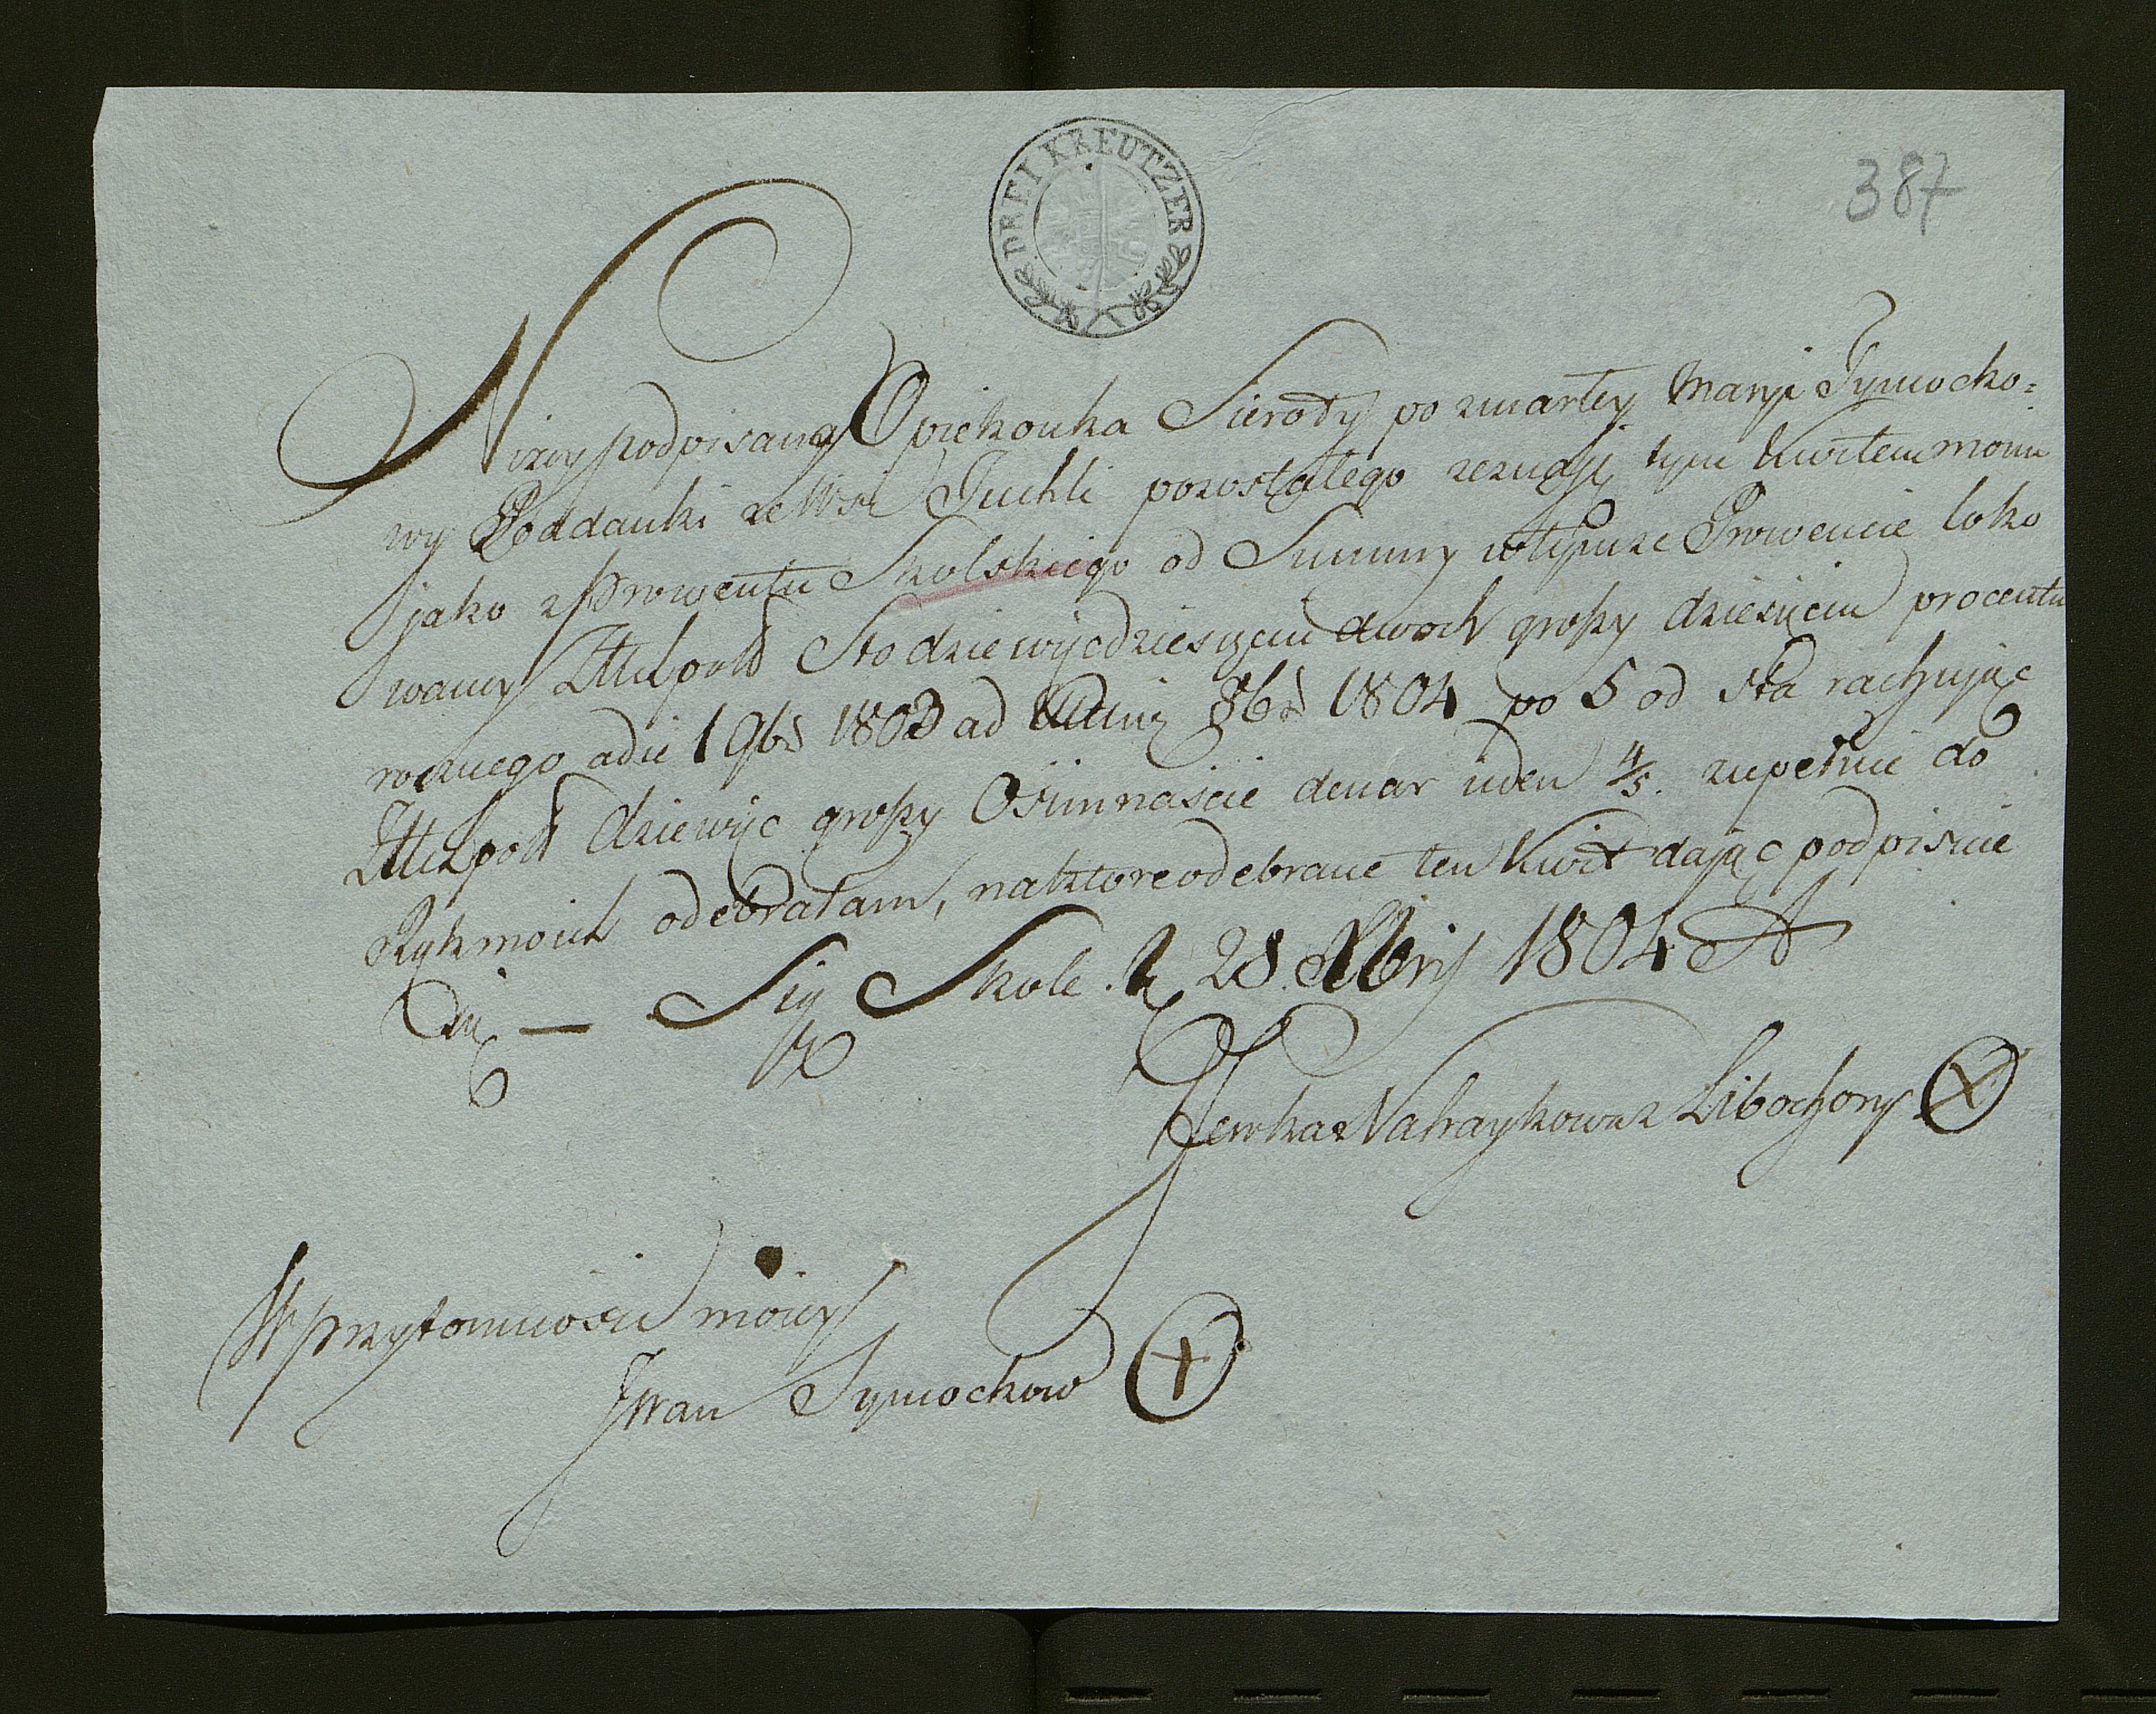 DREI KREUTZER
387
Niżey podpisana Opiekonka Sieroty po zmarłey Maryi Tymocho=
wy Poddanki ze Wsi Tuchli pozostałego zeznaję tym Kwitem moim
jako z Prowentu Skolskiego od Summy w tymże Prowencie loko
waney Złłchpols Sto dziewięcdziesięciu dwoch groszy dziesięciu procentu
rocznego a die 1 9b 1803 ad 8b 1804 po 5 od sta rachując
Złłchpols dziewięc groszy Ośimnaście denar ieden 4/5. zupełnie do
Rąk moich odebrałam, na ktore odebranie ten Kwit dając podpisuie
Się Skole. 28. 1804
Jewka Nahaykowa z Libochory
W przytomności moiey
Jwan Tymochow